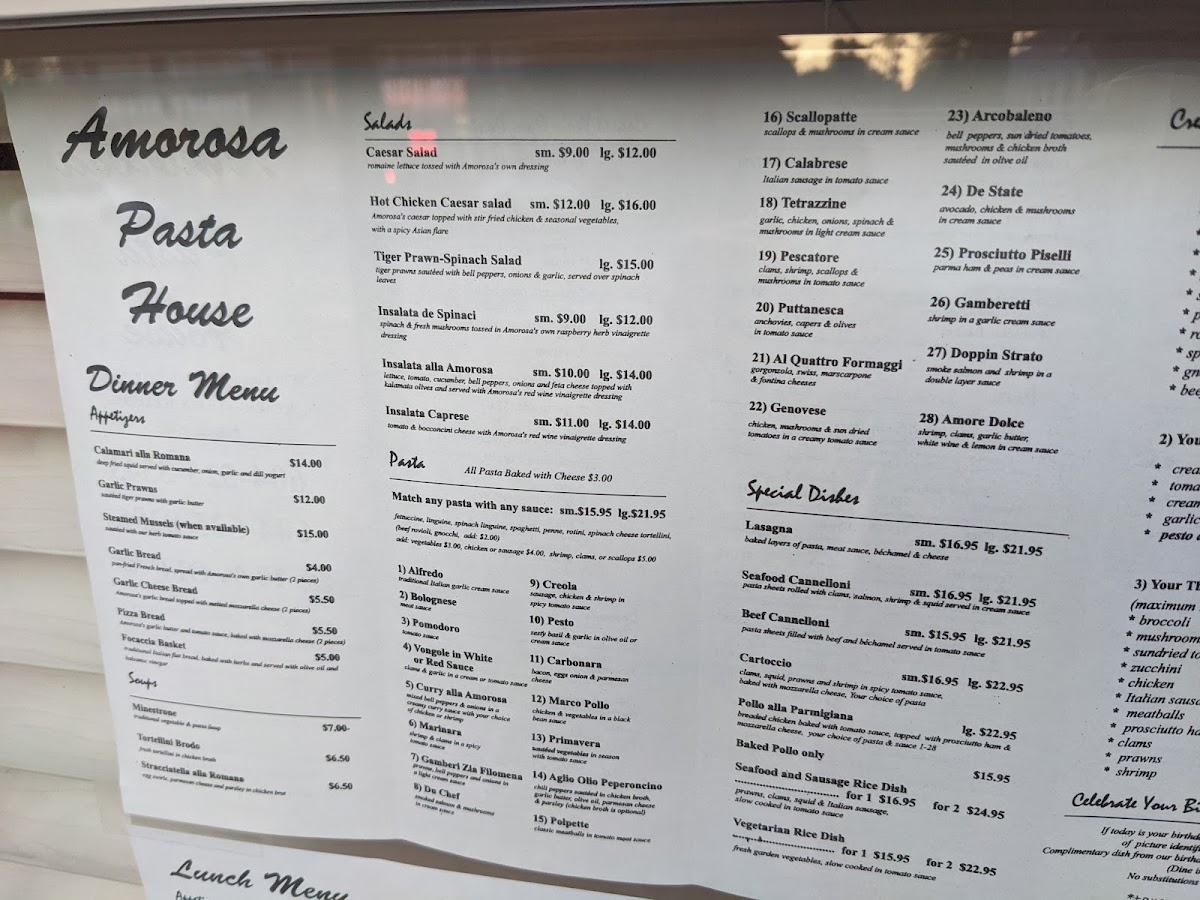 Amorosa
Pasta
House
Dinner Menu
Appetizers
Calamari alla Romana $14.00
deep fried squid served with cucumber, onion, garlic and dill yogurt
Garlic Prawns $12.00
sautéed tiger prawns with garlic butter
Steamed Mussels (when available) $15.00
sautéed with our herb tomato sauce
Garlic Bread $4.00
pan-fried French bread, spread with Amorosa's own garlic butter (2 pieces)
Garlic Cheese Bread $5.50
Amorosa's garlic bread topped with melted mozzarella cheese (2 pieces)
Pizza Bread $5.50
Amorosa's garlic butter and tomato sauce, baked with mozzarella cheese (2 pieces)
Focaccia Basket $5.00
traditional Italian flat bread, baked with herbs and served with olive oil and
balsamic vinegar
Soups
Minestrone $7.00
traditional vegetable & pasta soup
Tortellini Brodo $6.50
fresh tortellini in chicken broth
Stracciatella alla Romana $6.50
egg swirls, parmesan cheese and parsley in chicken broth
Salads
Caesar Salad sm. $9.00 lg. $12.00
romaine lettuce tossed with Amorosa's own dressing
Hot Chicken Caesar salad sm. $12.00 lg. $16.00
Amorosa's caesar topped with stir fried chicken & seasonal vegetables,
with a spicy Asian flare
Tiger Prawn-Spinach Salad lg. $15.00
tiger prawns sautéed with bell peppers, onions & garlic, served over spinach
leaves
Insalata de Spinaci sm. $9.00 lg. $12.00
spinach & fresh mushrooms tossed in Amorosa's own raspberry herb vinaigrette
dressing
Insalata alla Amorosa sm. $10.00 lg. $14.00
lettuce, tomato, cucumber, bell peppers, onions and feta cheese topped with
kalamata olives and served with Amorosa's red wine vinaigrette dressing
Insalata Caprese sm. $11.00 lg. $14.00
tomato & bocconcini cheese with Amorosa's red wine vinaigrette dressing
Pasta All Pasta Baked with Cheese $3.00
Match any pasta with any sauce: sm.$15.95 lg.$21.95
fettuccine, linguine, spinach linguine, spaghetti, penne, rotini, spinach cheese tortellini,
(beef rovioli, gnocchi, add: $2.00)
add: vegetables $3.00, chicken or sausage $4.00, shrimp, clams, or scallops $5.00
1) Alfredo
traditional Italian garlic cream sauce
2) Bolognese
meat sauce
3) Pomodoro
tomato sauce
4) Vongole in White
or Red Sauce
clams & garlic in a cream or tomato sauce
5) Curry alla Amorosa
mixed bell peppers & onions in a
creamy curry sauce with your choice
of chicken or shrimp
6) Marinara
shrimp & clams in a spicy
tomato sauce
7) Gamberi Zia Filomena
prawns, bell peppers and onions in
a light cream sauce
8) Du Chef
smoked salmon & mushrooms
in cream sauce
9) Creola
sausage, chicken & shrimp in
spicy tomato sauce
10) Pesto
zesty basil & garlic in olive oil or
cream sauce
11) Carbonara
bacon, eggs onion & parmesan
cheese
12) Marco Pollo
chicken & vegetables in a black
bean sauce
13) Primavera
sautéed vegetables in season
with tomato sauce
14) Aglio Olio Peperoncino
chili peppers sautéed in chicken broth,
garlic butter, olive oil, parmesan cheese
& parsley (chicken broth is optional)
15) Polpette
classic meatballs in tomato meat sauce
16) Scallopatte
scallops & mushrooms in cream sauce
17) Calabrese
Italian sausage in tomato sauce
18) Tetrazzine
garlic, chicken, onions, spinach &
mushrooms in light cream sauce
19) Pescatore
clams, shrimp, scallops &
mushrooms in tomato sauce
20) Puttanesca
anchovies, capers & olives
in tomato sauce
21) Al Quattro Formaggi
gorgonzola, swiss, marscarpone
& fontina cheeses
22) Genovese
chicken, mushrooms & sun dried
tomatoes in a creamy tomato sauce
23) Arcobaleno
bell peppers, sun dried tomatoes,
mushrooms & chicken broth
sautéed in olive oil
24) De State
avocado, chicken & mushrooms
in cream sauce
25) Prosciutto Piselli
parma ham & peas in cream sauce
26) Gamberetti
shrimp in a garlic cream sauce
27) Doppin Strato
smoke salmon and shrimp in a
double layer sauce
28) Amore Dolce
shrimp, clams, garlic butter,
white wine & lemon in cream sauce
Special Dishes
Lasagna sm. $16.95 lg. $21.95
baked layers of pasta, meat sauce, béchamel & cheese
Seafood Cannelloni sm. $16.95 lg. $21.95
pasta sheets rolled with clams, salmon, shrimp & squid served in cream sauce
Beef Cannelloni sm. $15.95 lg. $21.95
pasta sheets filled with beef and béchamel served in tomato sauce
Cartoccio sm.$16.95 lg. $22.95
clams, squid, prawns and shrimp in spicy tomato sauce,
baked with mozzarella cheese, Your choice of pasta
Pollo alla Parmigiana lg. $22.95
breaded chicken baked with tomato sauce, topped with prosciutto ham &
mozzarella cheese, your choice of pasta & sauce 1-28
Baked Pollo only $15.95
Seafood and Sausage Rice Dish
for 1 $16.95 for 2 $24.95
prawns, clams, squid & Italian sausage,
slow cooked in tomato sauce
Vegetarian Rice Dish
for 1 $15.95 for 2 $22.95
fresh garden vegetables, slow cooked in tomato sauce
Cre
* p
* ro
* sp
* gn
* bee
2) You
* crea
* toma
* cream
* garlic
* pesto
3) Your T
(maximum
* broccoli
* mushroom
* sundried to
* zucchini
* chicken
* Italian sausa
* meatballs
* prosciutto ha
* clams
* prawns
* shrimp
Celebrate Your Bi
If today is your birthda
of picture identifi
Complimentary dish from our birthda
(Dine i
No substitutions
Lunch Menu